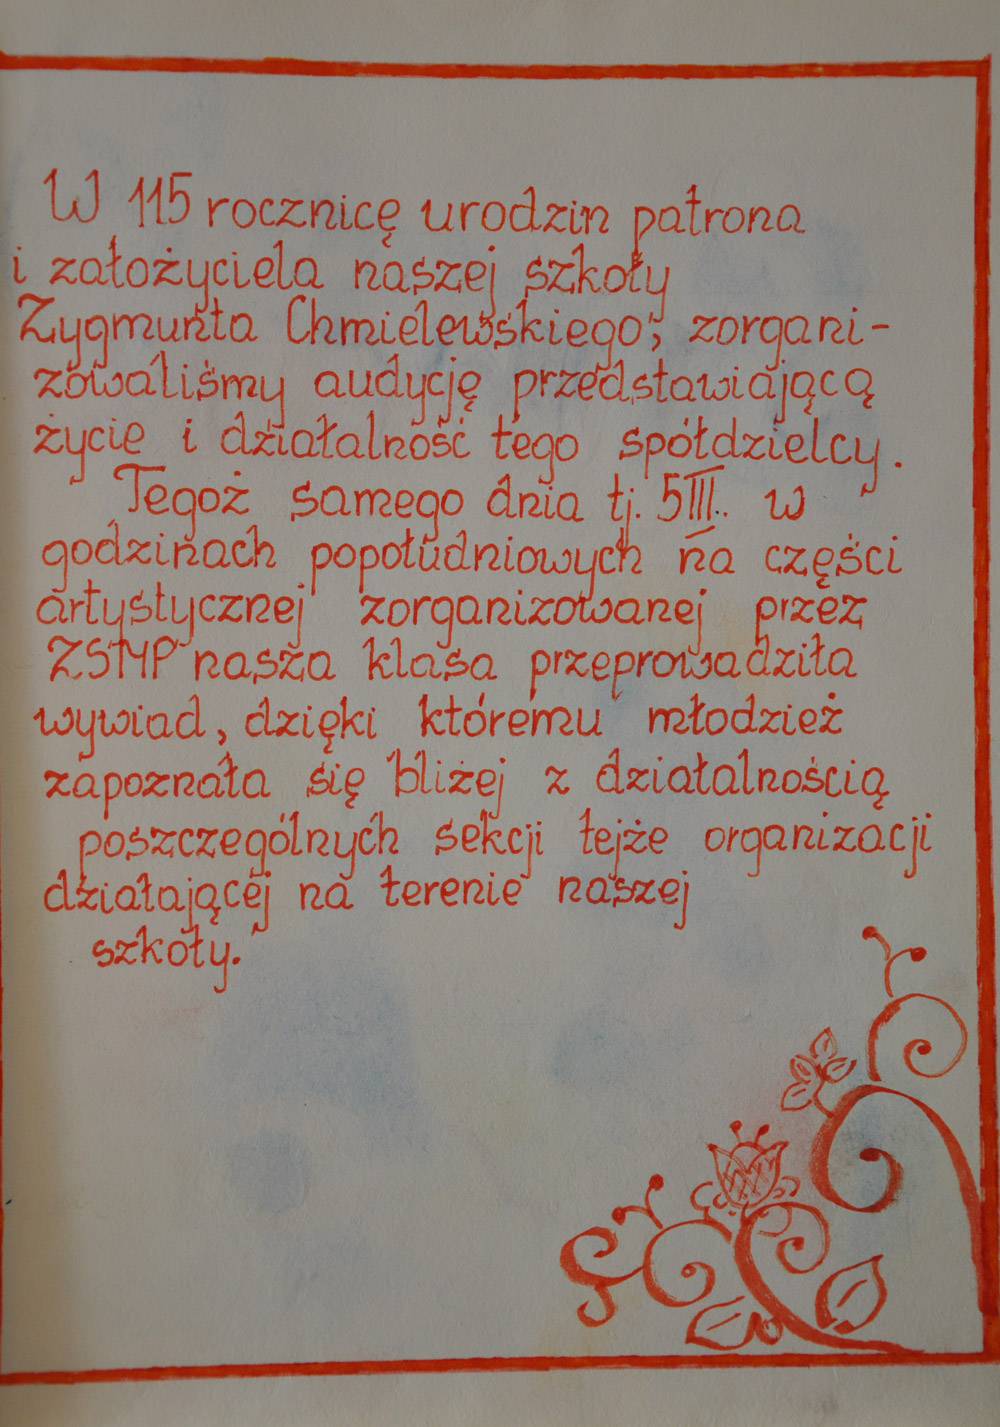 W 115 rocznicę urodzin patrona
i założyciela naszej szkoły
Zygmunta Chmielewskiego, zorgani-
zowaliśmy audycję przedstawiającą
życie i działalność tego spółdzielcy.
Tegoż samego dnia tj. 5III. w
godzinach popołudniowych na części
artystycznej zorganizowanej przez
ZSMP nasza klasa przeprowadziła
wywiad, dzięki któremu młodzież
zapoznała się bliżej z działalnością
poszczególnych sekcji tejże organizacji
działającej na terenie naszej
szkoły.